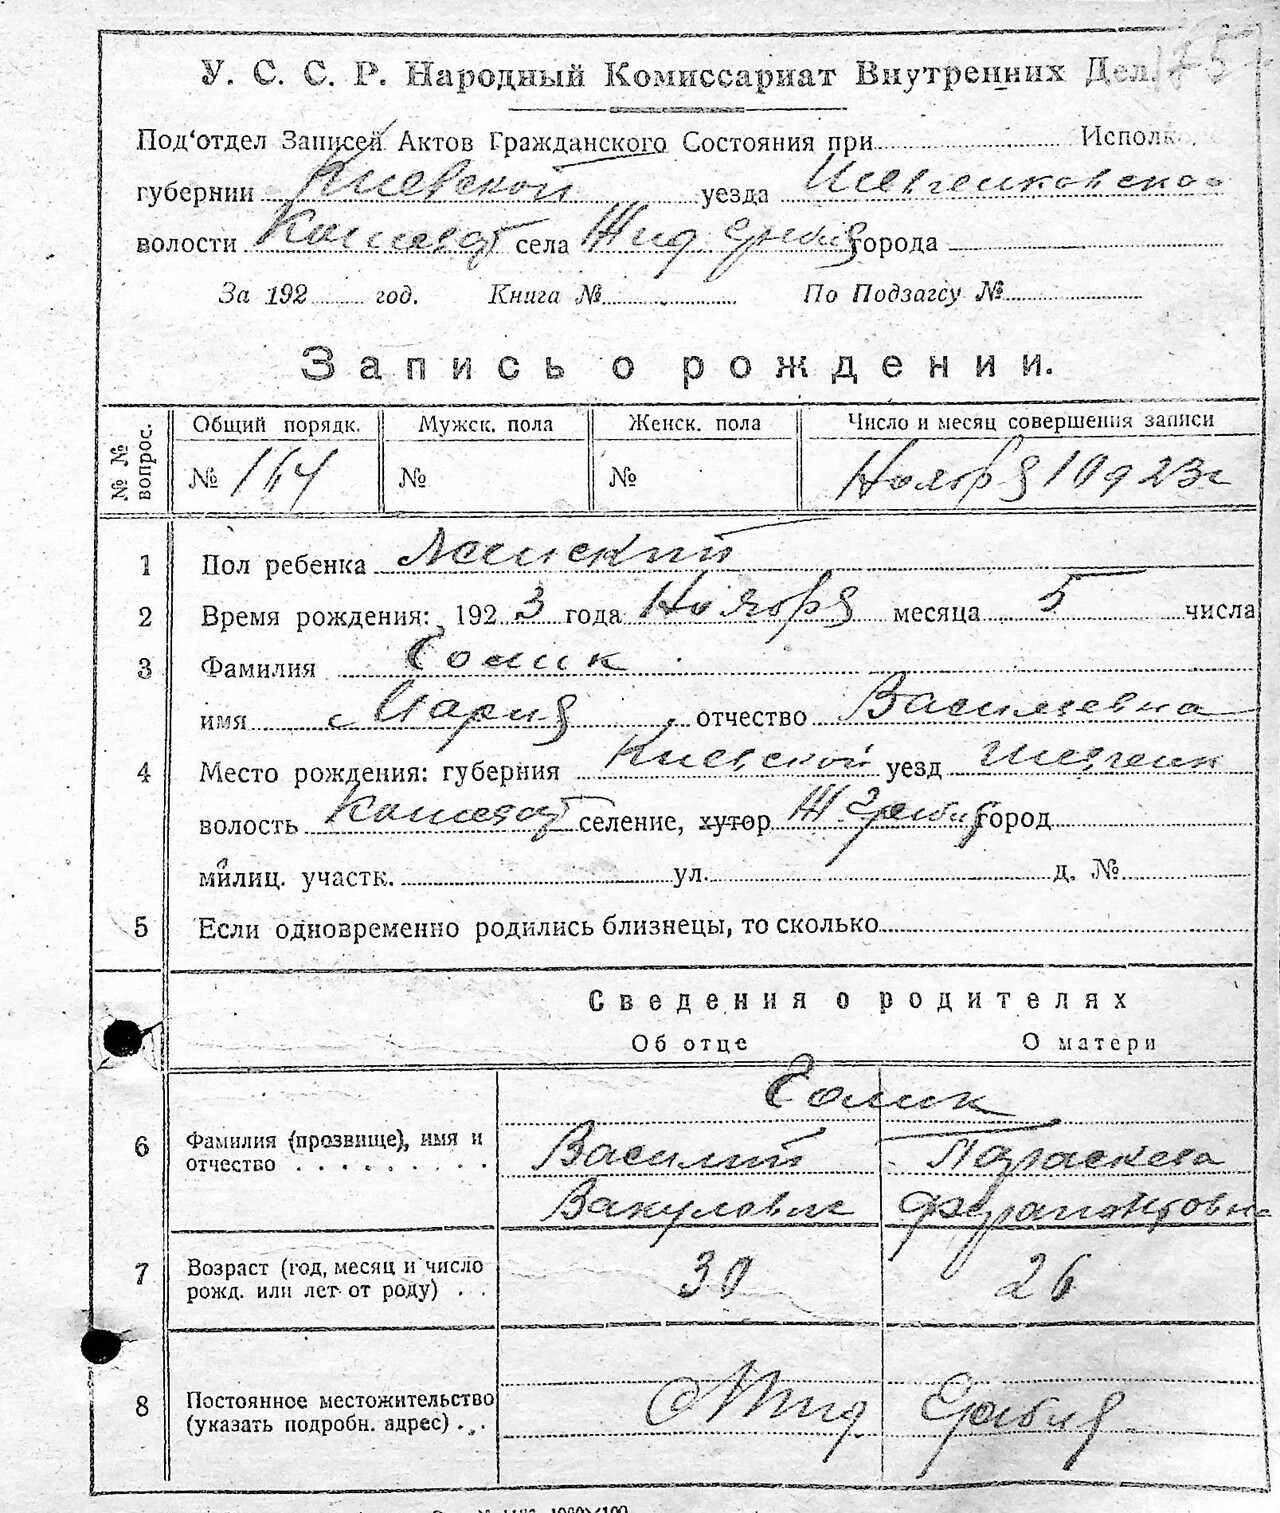 175
У. С. С. Р. Народный Комиссариат Внутренних Дел.
Под'отдел Записей Актов Гражданского Состояния при Исполк
губернии Киевской уезда Шевченковско
волости Кошеват села Жид Гребля города
За 192 год. Книга № По Подзагсу №
Запись о рождении.
№ № вопрос. Общий порядк. Мужск. пола Женск. пола Число и месяц совершения записи
№ 164 № № Ноября 10 д 23 г
1 Пол ребенка Женский
2 Время рождения: 1923 года Ноября месяца 5 числа
3 Фамилия Голик
имя Мария, отчество Васильевна
4 Место рождения: губерния Киевской уезд Шевченк
волость Кошеват селение, хутор Ж Гребля город
милиц. участк. ул. д. №
5 Если одновременно родились близнецы, то сколько
Сведения о родителях
Об отце О матери
Голик
6 Фамилия (прозвище), имя и Василий Параскева
отчество Вакулович Ферапонтовн
7 Возраст (год, месяц и число 30 26
рожд. или лет от роду)
8 Постоянное местожительство Жид Гребля
(указать подробн. адрес)